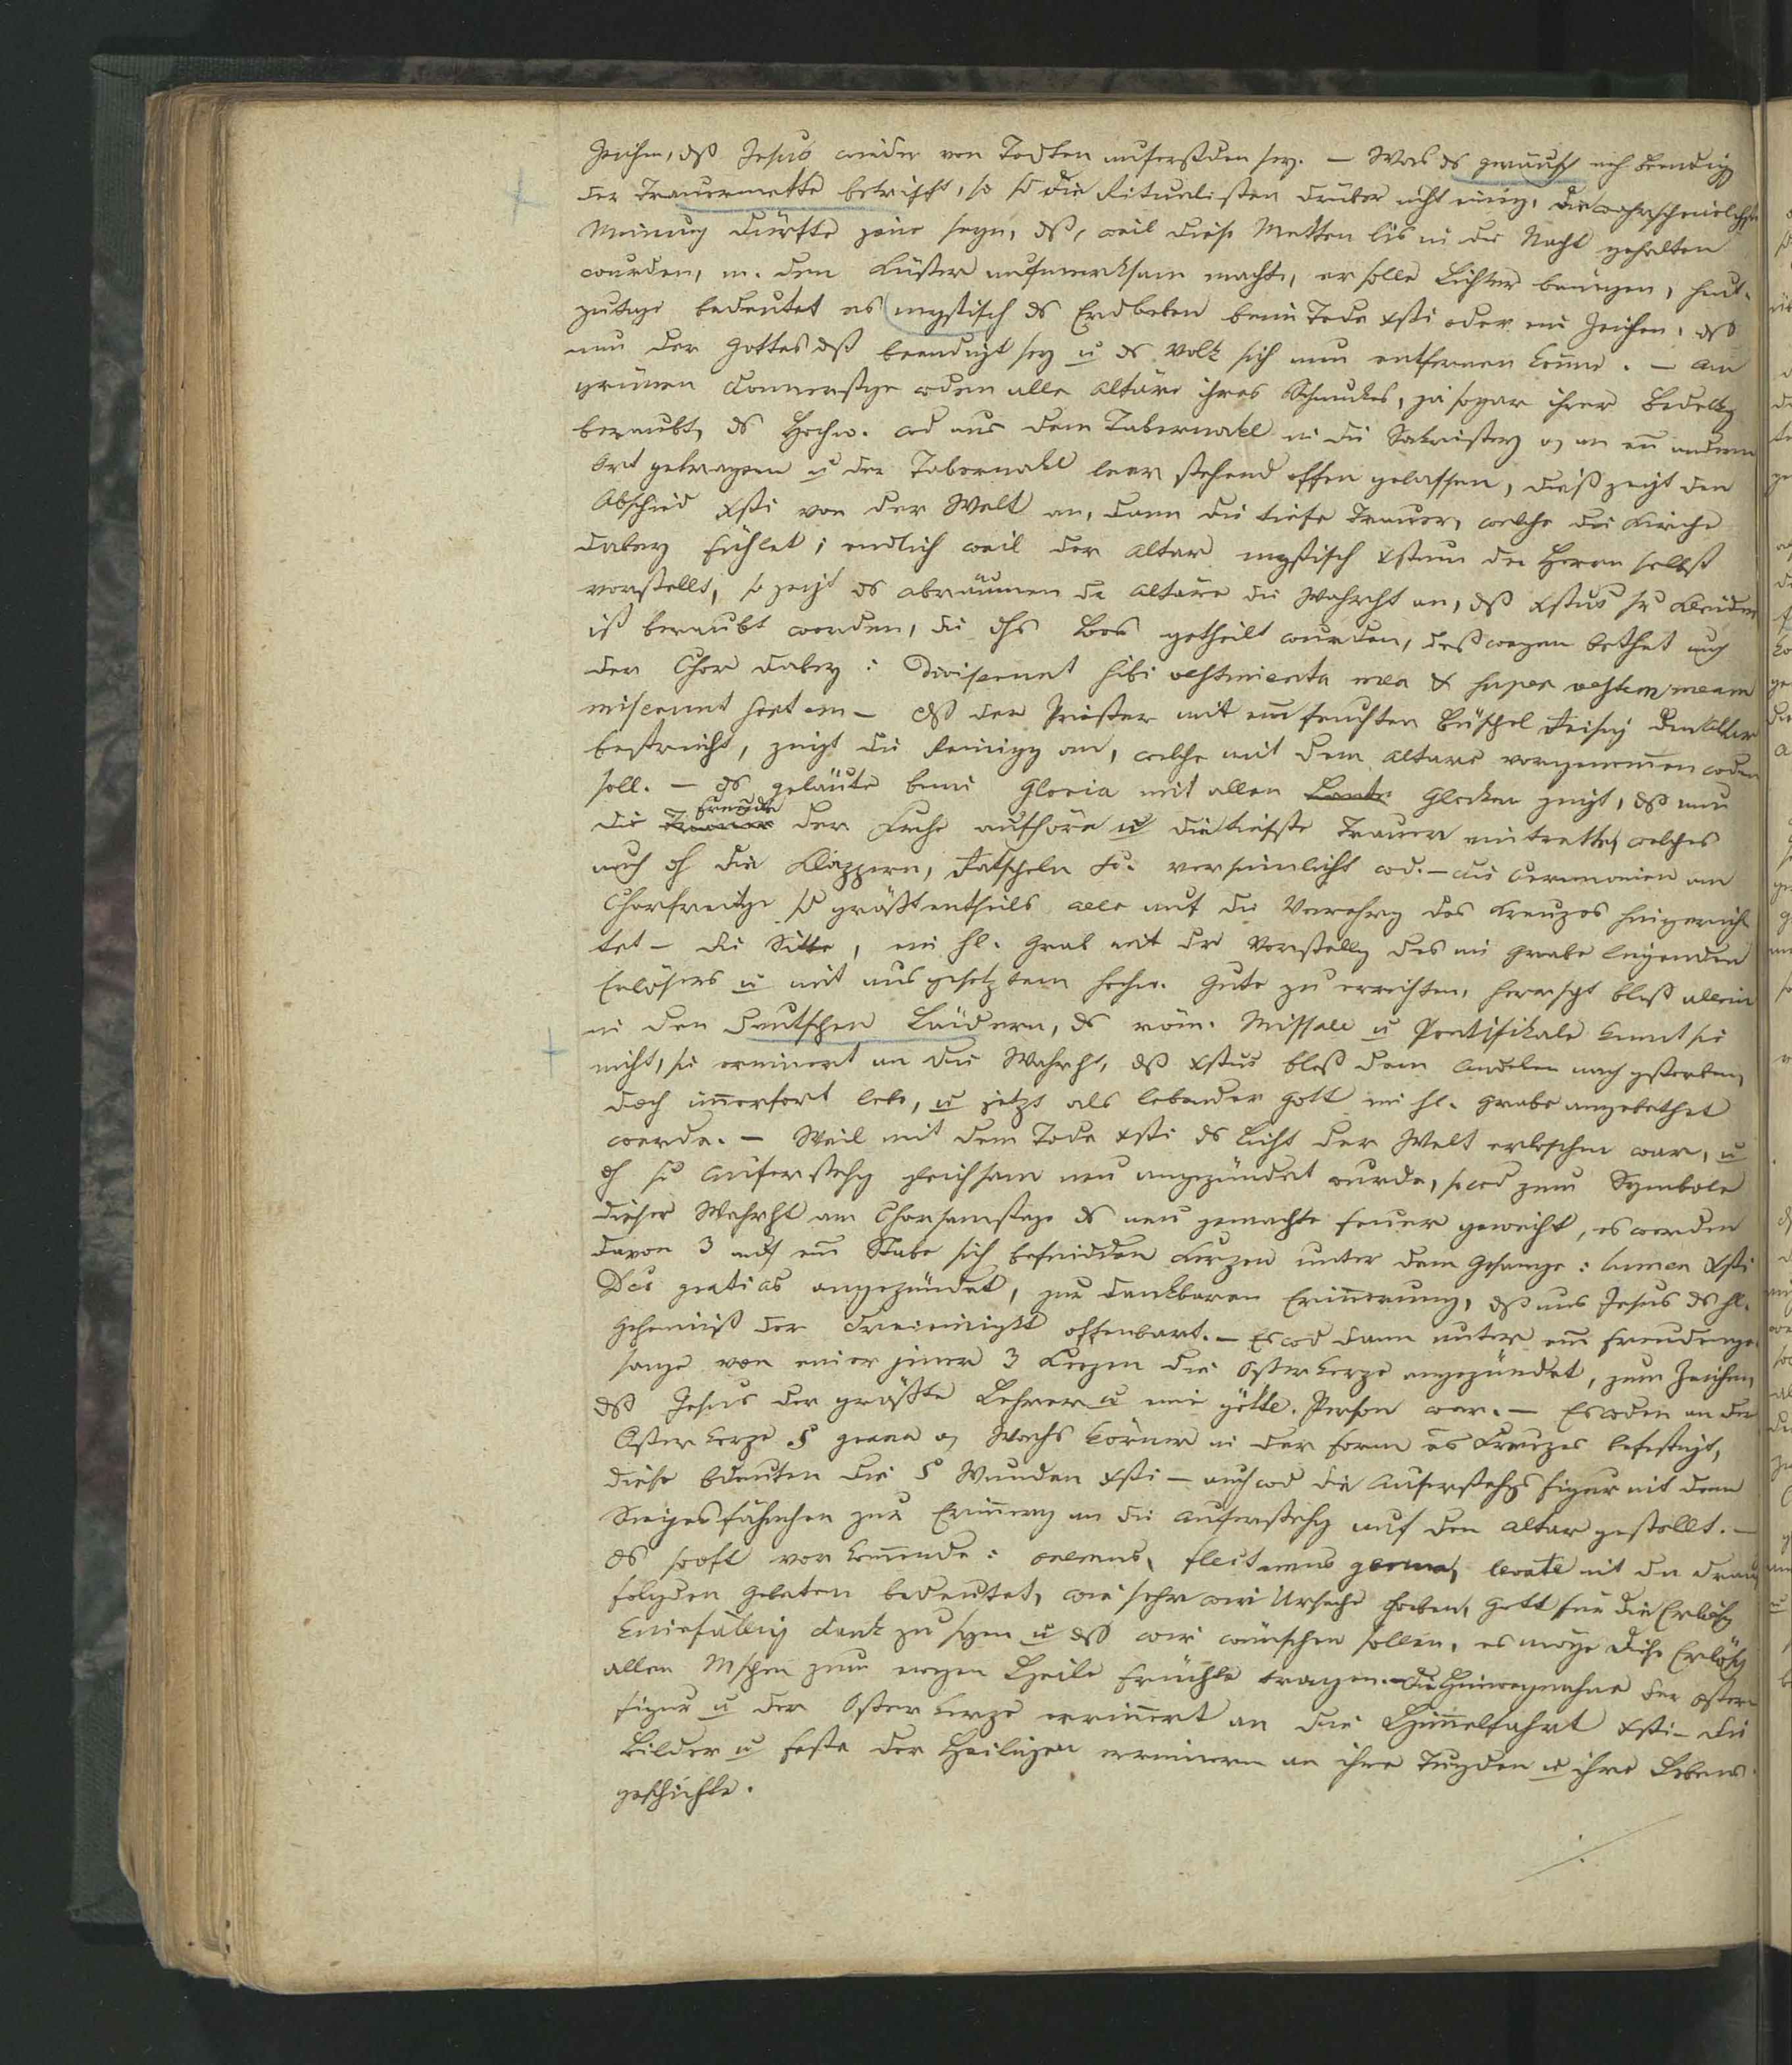 Zeichen, dß Jesus wieder von Todten auferstden sey. – Was ds geräusch nach Beendigg
der Trauermette betrifft, so sd die Ritualisten drüber nicht einig. Die wahrscheinlichste
Meinung dürfte jene seyn, dß, weil diese Metten bis in die Nacht gehalten
wurden, m. den Küster aufmerksam machte, er solle Lichter bringen, heut-
zutage bedeutet es mystisch ds Erdbeben beim Tode Xsti oder ein Zeichen, dß
nun der Gottesdst beendigt sey u ds Volk sich nun entfernen könne. – Am
grünen Donnerstge wden alle Altäre ihres Schmuckes, ja sogar ihrer Bedekg
beraubt, ds Hochw. wd aus dem Tabernakel in die Sakristey o an ein andern
Ort getragen u der Tabernakel leer stehend offen gelassen, dieß zeigt den
Abschied Xsti von der Welt an, dann die tiefe Trauer, welche die Kirche
dabey fühlet; endlich weil der Altar mystisch Xstum den Herrn selbst
vorstellt, so zeigt ds abräumen dr Altäre die Wahrht an, dß Xstus sr Kleider
ist beraubt worden, die dhs Loos getheilt wurden, deßwegen bethet auch
der Chor dabey: Diviserunt sibi vestimenta mea & super vestem meam
miserunt sortem – dß der Priester mit ein feuchten Büschel Reisig den Altar
bestreicht, zeigt die Reinigg an, welche mit dem Altare vorgenommen wden
soll. – ds geläute beim Gloria mit allen Glocken zeigt, dß nun
die Freude der Kirche aufhöre u die tiefste Trauer eintrette, welches
auch dh die Klappern, Ratscheln &c. versinnlicht wd. – Die Ceremonien am
Charfreitge sd größtentheils alle auf die Verehrg des Kreuzes hingerich
tet – die Sitte, ein hl. Grab mit der Vorstellg des im Grabe liegenden
Erlösers u mit ausgesetztem hochw. Gute zu errichten, herrscht bloß allein
in den deutschen Ländern, ds röm. Missale u Pontifikale kennt sie
nicht, sie erinnert an die Wahrht, dß Xstus bloß dem nach gestorben,
doch immerfort lebe, u jetzt als lebender Gott im hl. Grabe angebethet
werde. – Weil mit dem Tode Xsti ds Licht der Welt erloschen war, u
dh se Auferstehg gleichsam neu angezündet wurde, so wd zum Symbole
dieser Wahrht am Charsamstage ds neu gemachte Feuer geweiht, es werden
davon 3 auf ein Stabe sich befindden Kerzen unter dem Gesange: lumen Xsti
Deo gratias angezündet, zur dankbaren Erinnerung, dß uns Jesus ds hl.
Geheimniß der Dreieinigkt offenbart. – Es wd dann unter ein Freudenge-
sange von einer jener 3 Kerzen die Osterkerze angezündet, zum Zeichen,
dß Jesus der größte Lehrer u eine göttl. Person war. – Es wden an der
Osterkerze 5 grana o Wachs Körner in der Form es Kreuzes befestigt,
diese bdeuten die 5 Wunden Xsti – auch wd die Auferstehgsfigur mit dem
Siegesfähnchen zur Erinnerg an die Auferstehg auf den Altar gestellt. –
Ds so oft vorkommende: oremus, flectamus genua, levate mit den drauf
folgden Gebeten bedeutet, wie sehr wir Ursache haben, Gott für die Erlösg
kniefällig Dank zu sagen u dß wir wünschen sollen, es möge diese Erlösg
allen Mschen zum ewgen Heile Früchte tragen. – Die Hinwegnahme der Oster-
figur u der Osterkerze errinnert an die Himmelfahrt Xsti – die
Bilder u Feste der Heiligen erinnern an ihre Tugden u ihre Lebens-
geschichte.